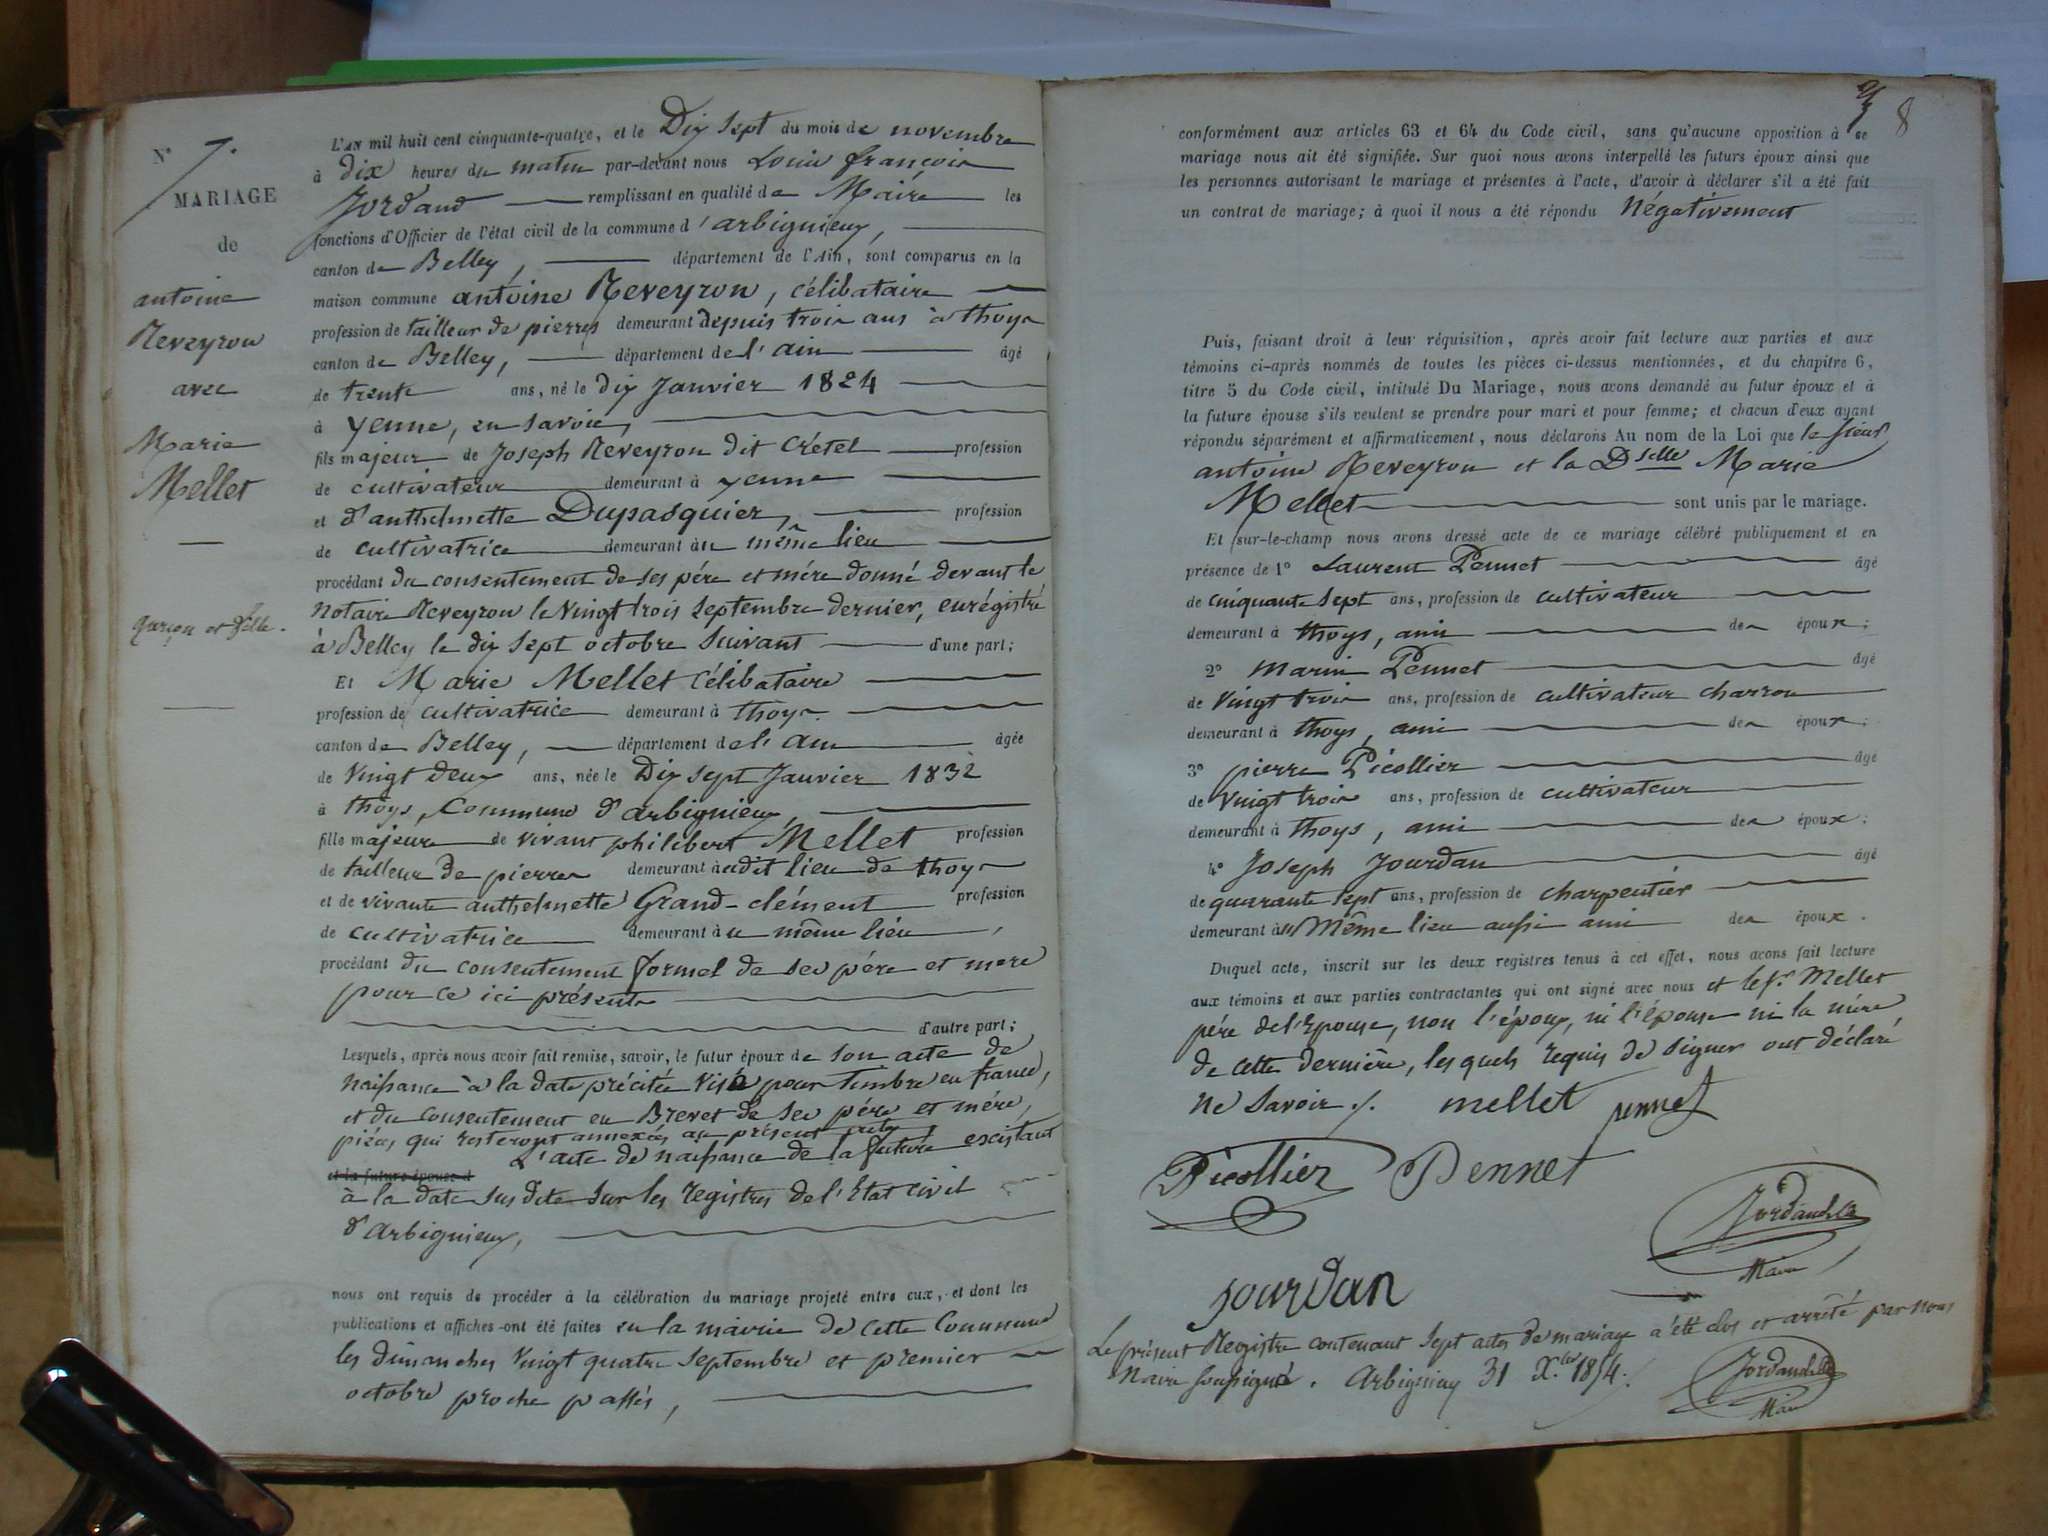 N° 7.
MARIAGE
de
antoine
Reveyron
avec
Marie
Mellet
garçon et fille.
L'AN mil huit cent cinquante-quatre, et le Dix sept du mois de novembre
à dix heures du matin par-devant nous Louis françois
Jordand remplissant en qualité de Maire les
fonctions d'Officier de l'état civil de la commune d'arbignieux,
canton de Belley, département de l'Ain, sont comparus en la
maison commune antoine Reveyron, célibataire
profession de tailleur de pierres demeurant depuis trois ans à thoys
canton de Belley, département de l'ain âgé
de trente ans, né le dix Janvier 1824
à yenne, en savoie,
fils majeur de Joseph Reveyron dit Crétel profession
de cultivateur demeurant à yenne
et d'anthelmette Dupasquier, profession
de cultivatrice demeurant au même lieu
procédant du consentement de ses père et mére donné devant le
Notaire Reveyron le Vingt trois septembre dernier, enrégistré
à Belley le dix sept octobre suivant d'une part;
Et Marie Mellet célibataire
profession de cultivatrice demeurant à thoys.
canton de Belley, département de l'ain âgée
de Vingt deux ans, née le Dix sept Janvier 1832
à thoys, Commune d'arbignieux,
fille majeure de vivant philibert Mellet profession
de tailleur de pierres demeurant audit lieu de thoys
et de vivante anthelmette Grand-clément profession
de cultivatrice demeurant au même lieu,
procédant du consentement formel de ses père et mere
pour ce ici présents
d'autre part;
Lesquels, après nous avoir fait remise, savoir, le futur époux de son acte de
naissance à la date précitée visé pour timbre en france,
et du consentement en Brevet de ses pére et mére,
piéces qui resteront annexées au présent acte
L'acte de naissance de la future existant
et la future épouse d
à la date sus dite sur les registres de l'Etat civil
d'Arbignieux,
nous ont requis de procéder à la célébration du mariage projeté entre eux, et dont les
publications et affiches ont été faites en la mairie de cette Commune
les dimanches Vingt quatre septembre et premier
octobre proche passés,
8
conformément aux articles 63 et 64 du Code civil, sans qu'aucune opposition à ce
mariage nous ait été signifiée. Sur quoi nous avons interpellé les futurs époux ainsi que
les personnes autorisant le mariage et présentes à l'acte, d'avoir à déclarer s'il a été fait
un contrat de mariage; à quoi il nous a été répondu Négativement
Puis, faisant droit à leur réquisition, après avoir fait lecture aux parties et aux
témoins ci-après nommés de toutes les pièces ci-dessus mentionnées, et du chapitre 6,
titre 5 du Code civil, intitulé Du Mariage, nous avons demandé au futur époux et à
la future épouse s'ils veulent se prendre pour mari et pour femme; et chacun d'eux ayant
répondu séparément et affirmativement, nous déclarons Au nom de la Loi que le sieur
antoine Reveyron et la Dselle Marie
Mellet sont unis par le mariage.
Et sur-le-champ nous avons dressé acte de ce mariage célébré publiquement et en
présence de 1° Laurent Pennet âgé
de cinquante sept ans, profession de cultivateur
demeurant à thoys, ami des époux;
2° Marin Pennet âgé
de Vingt trois ans, profession de cultivateur charron
demeurant à thoys, ami des époux;
3° pierre Picollier âgé
de Vingt trois ans, profession de cultivateur
demeurant à thoys, ami des époux;
4° Joseph Jourdan âgé
de quarante sept ans, profession de charpentier
demeurant au Même lieu aussi ami des époux.
Duquel acte, inscrit sur les deux registres tenus à cet effet, nous avons fait lecture
aux témoins et aux parties contractantes qui ont signé avec nous et le sr Mellet
pére de l'Epouse, non l'époux, ni l'épouse ni la mére
de cette dernière, les quels requis de signer ont déclaré
ne savoir ./. mellet pennet
Picollier Pennet
Jordand
Maire
jourdan
Le présent Registre contenant sept actes de mariage a été clos et arrêté par nous
Maire soussigné. Arbignieu 31 Xbre 1854.
Jordand
Maire